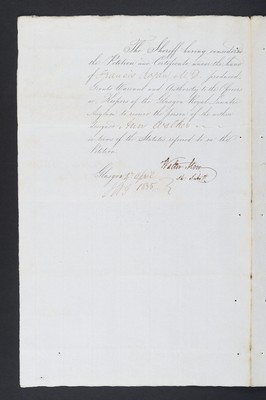 The Sheriff having considered
the Petition and Certificate under the hand
of Francis M.D. produced,
Grants Warrant and Authority to the Officers
or Keepers of the Glasgow Royal Lunatic
Asylum to receive the person of the within
designed Ann
in terms of the Statutes referred to in this
Petition.
Glasgow 5 April
1845
Walter Moir